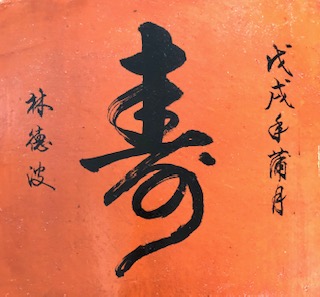 戊戌年蒲月
寿
林德波